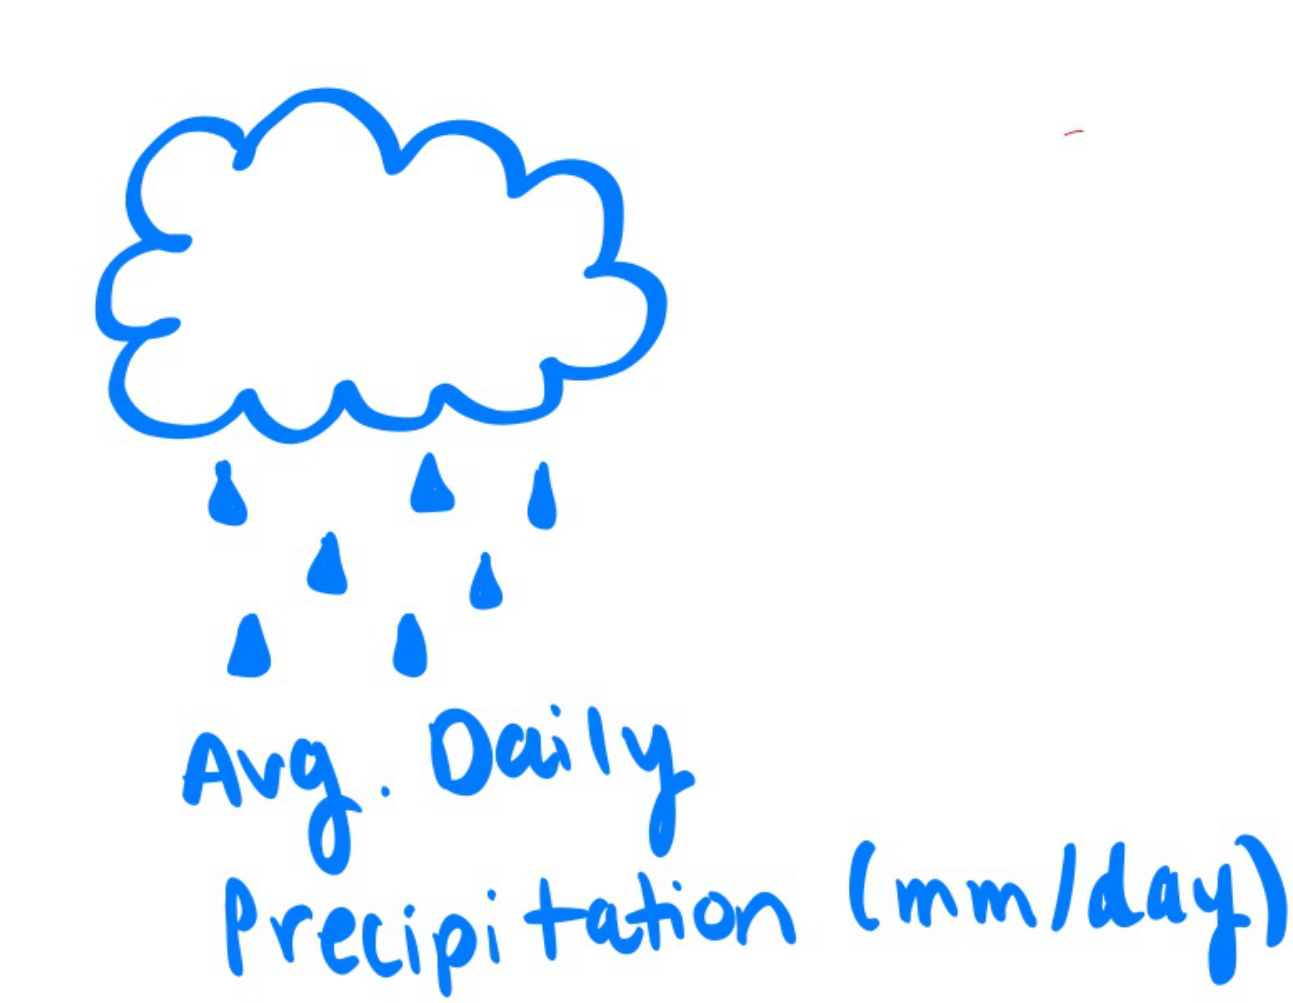 Avg. Daily
Precipitation (mm/day)